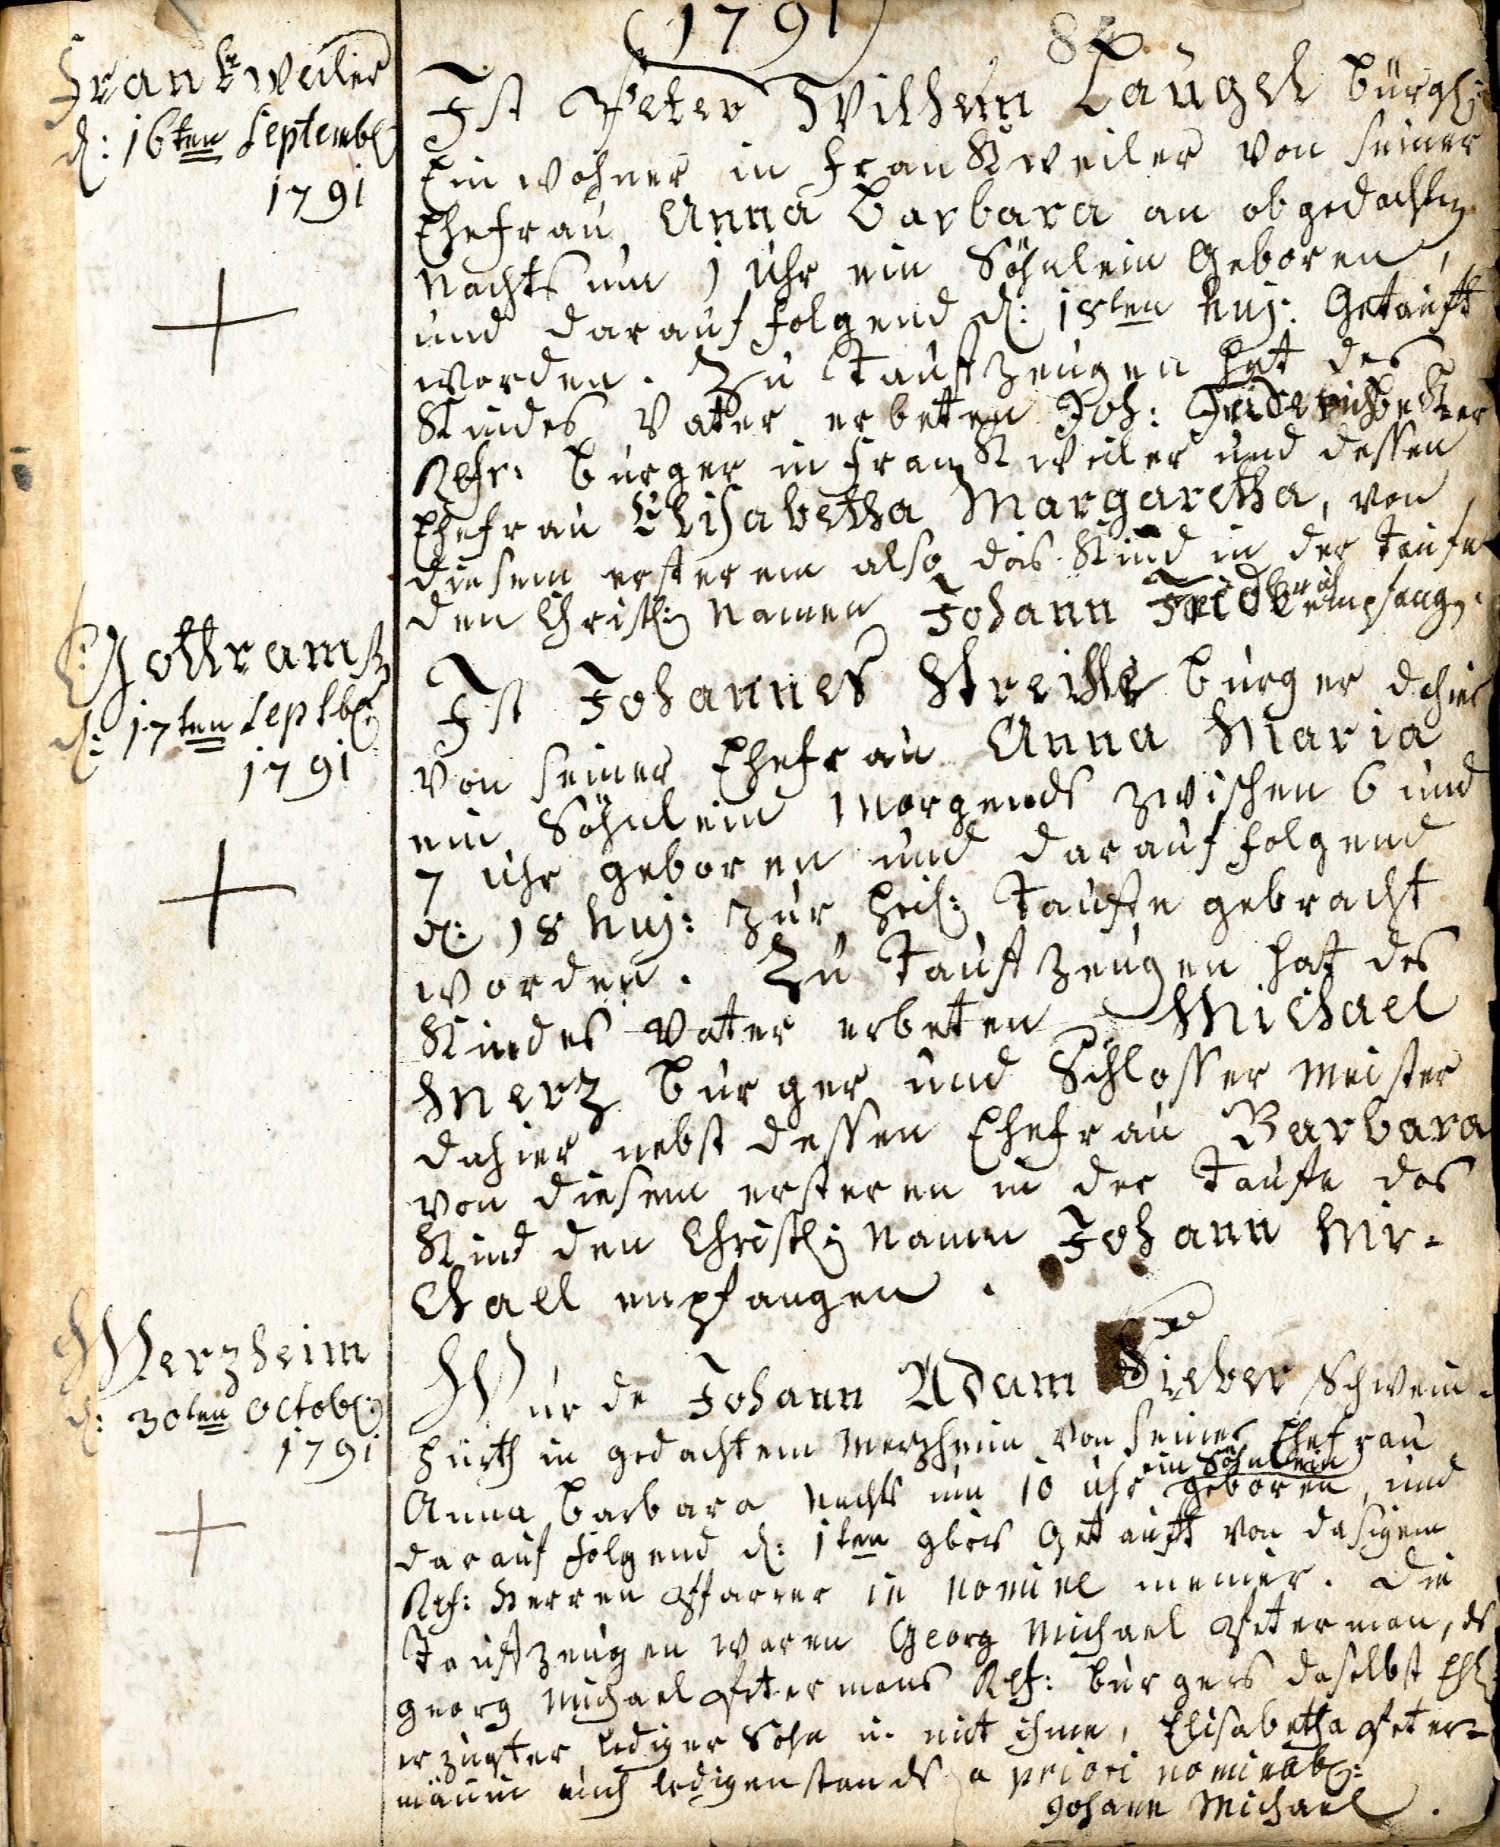 (1791)
Frankweiler
d: 16ten Septemb:
1791
Ist Peter Wilhelm Laugel bürgl:
Einwohner in Frankweiler von seiner
Ehefrau Anna Barbara an obgedachten
Nachts um 1 Uhr ein Söhnlein Geboren,
und darauf folgend d: 18ten huj: Getauft
worden. Zu Taufzeugen hat des
Kindes Vater erbeten Joh: Friderich
Refr: burger in Frankweiler und dessen
Ehefrau Elisabetha Margaretha, von
diesem ersterem also das Kind in der Taufe
den Christl: Namen Johann Friderich empfang:
Gottramst
d: 17ten Septbr:
1791
Ist Johannes burger dahier
von seiner Ehefrau Anna Maria
ein Söhnlein Morgends zwischen 6 und
7 Uhr geboren und darauf folgend
d: 18 huj: zur heil: Taufe gebracht
worden. Zu Taufzeugen hat des
Kindes Vater erbeten Michael
Merz burger und Schlosser Meister
dahier nebst dessen Ehefrau Barbara
von diesem ersteren in der Taufe das
Kind den Christl: Namen Johann Mi-
chael empfangen.
Merzheim
d: 30ten Octob:
1791
Wurde Johann Adam Sieber Schwein-
hürth in gedachtem Merzheim von seiner Ehefrau
Anna Barbara Nachts um 10 Uhr ein Söhnlein geboren, und
darauf folgend d: 1ten 9bris Getauft von dasigem
Ref: Herren Pfarrer in nomine meines. Die
Taufzeugen waren Georg Michael Peterman, ds
Georg Michael Petermans Ref: burgers daselbst Ehl:
erzeugter lediger Sohn u. mit ihme, Elisabetha Peter-
männin auch ledigenstands a priori
Johann Michael.